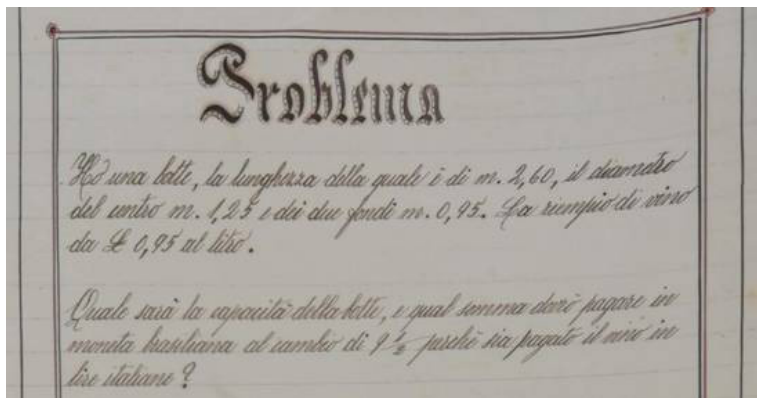 Problema
Ho una botte, la lunghezza della quale è di m. 2,60, il diametro
del centro m. 1,25 e dei due fondi m. 0,95. La riempio di vino
da £ 0,95 al litro.
Quale sarà la capacità della botte, e qual somma dovrò pagare in
moneta brasiliana al cambio di 9 1/2 perchè sia pagato il vino in
lire italiane?